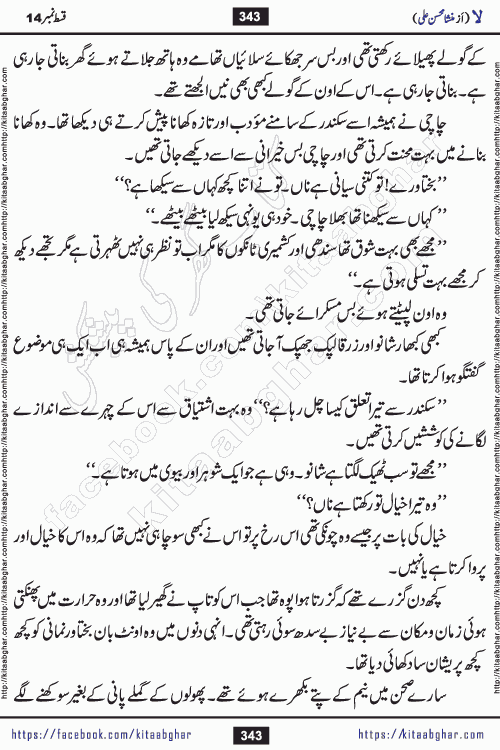 لا (از منشا محسن علی)
343
قسط نمبر 14
کے گولے پھیلائے رکھتی تھی اور بس سر جھکائے سلائیاں تھامے وہ ہاتھ چلاتے ہوئے گھر بناتی جا رہی
ہے۔ بناتی جا رہی ہے۔ اس کے اون کے گولے کبھی بھی نیں الجھتے تھے۔
چاچی نے ہمیشہ اسے سکندر کے سامنے مؤدب اور تازہ کھانا پیش کرتے ہی دیکھا تھا۔ وہ کھانا
بنانے میں بہت محنت کرتی تھی اور چاچی بس خیرانی سے اسے دیکھے جاتی تھیں۔
”بختاورے! تو کتنی سیانی ہے ناں۔ تو نے اتنا کچھ کہاں سے سیکھا ہے؟“
”کہاں سے سیکھنا تھا بھلا چاچی۔ خود ہی یونہی سیکھ لیا بیٹھے بیٹھے۔“
”مجھے بھی بہت شوق تھا سندھی اور کشمیری ٹانکوں کا مگر اب تو نظر ہی نہیں ٹھہرتی ہے مگر تجھے دیکھ
کر مجھے بہت تسلی ہوتی ہے۔“
وہ اون لپیٹتے ہوئے بس مسکرائے جاتی تھی۔
کبھی کبھار شانو اور زرقا لپک جھپک آ جاتی تھیں اور ان کے پاس ہمیشہ ہی اب ایک ہی موضوع
گفتگو ہوا کرتا تھا۔
”سکندر سے تیرا تعلق کیسا چل رہا ہے؟“ وہ بہت اشتیاق سے اس کے چہرے سے اندازے
لگانے کی کوششیں کرتی تھیں۔
”مجھے تو سب ٹھیک لگتا ہے شانو۔ وہی ہے جو ایک شوہر اور بیوی میں ہوتا ہے۔“
”وہ تیرا خیال تو رکھتا ہے ناں؟“
خیال کی بات پر جیسے وہ چونکی تھی اس رخ پر تو اس نے کبھی سوچا ہی نہیں تھا کہ وہ اس کا خیال اور
پروا کرتا ہے یا نہیں۔
کچھ دن گزرے تھے کہ گزرتا ہوا پوہ تھا جب اس کو تاپ نے گھیر لیا تھا اور وہ حرارت میں پھنکتی
ہوئی زمان و مکان سے بے نیاز بے سدھ سوئی رہتی تھی۔ انہی دنوں میں وہ اونٹ بان بختاور نمانی کو کچھ
کچھ پریشان سا دکھائی دیا تھا۔
سارے صحن میں نیم کے پتے بکھرے ہوئے تھے۔ پھولوں کے گملے پانی کے بغیر سوکھنے لگے
https://facebook.com/kitaabghar
343
https://kitaabghar.com